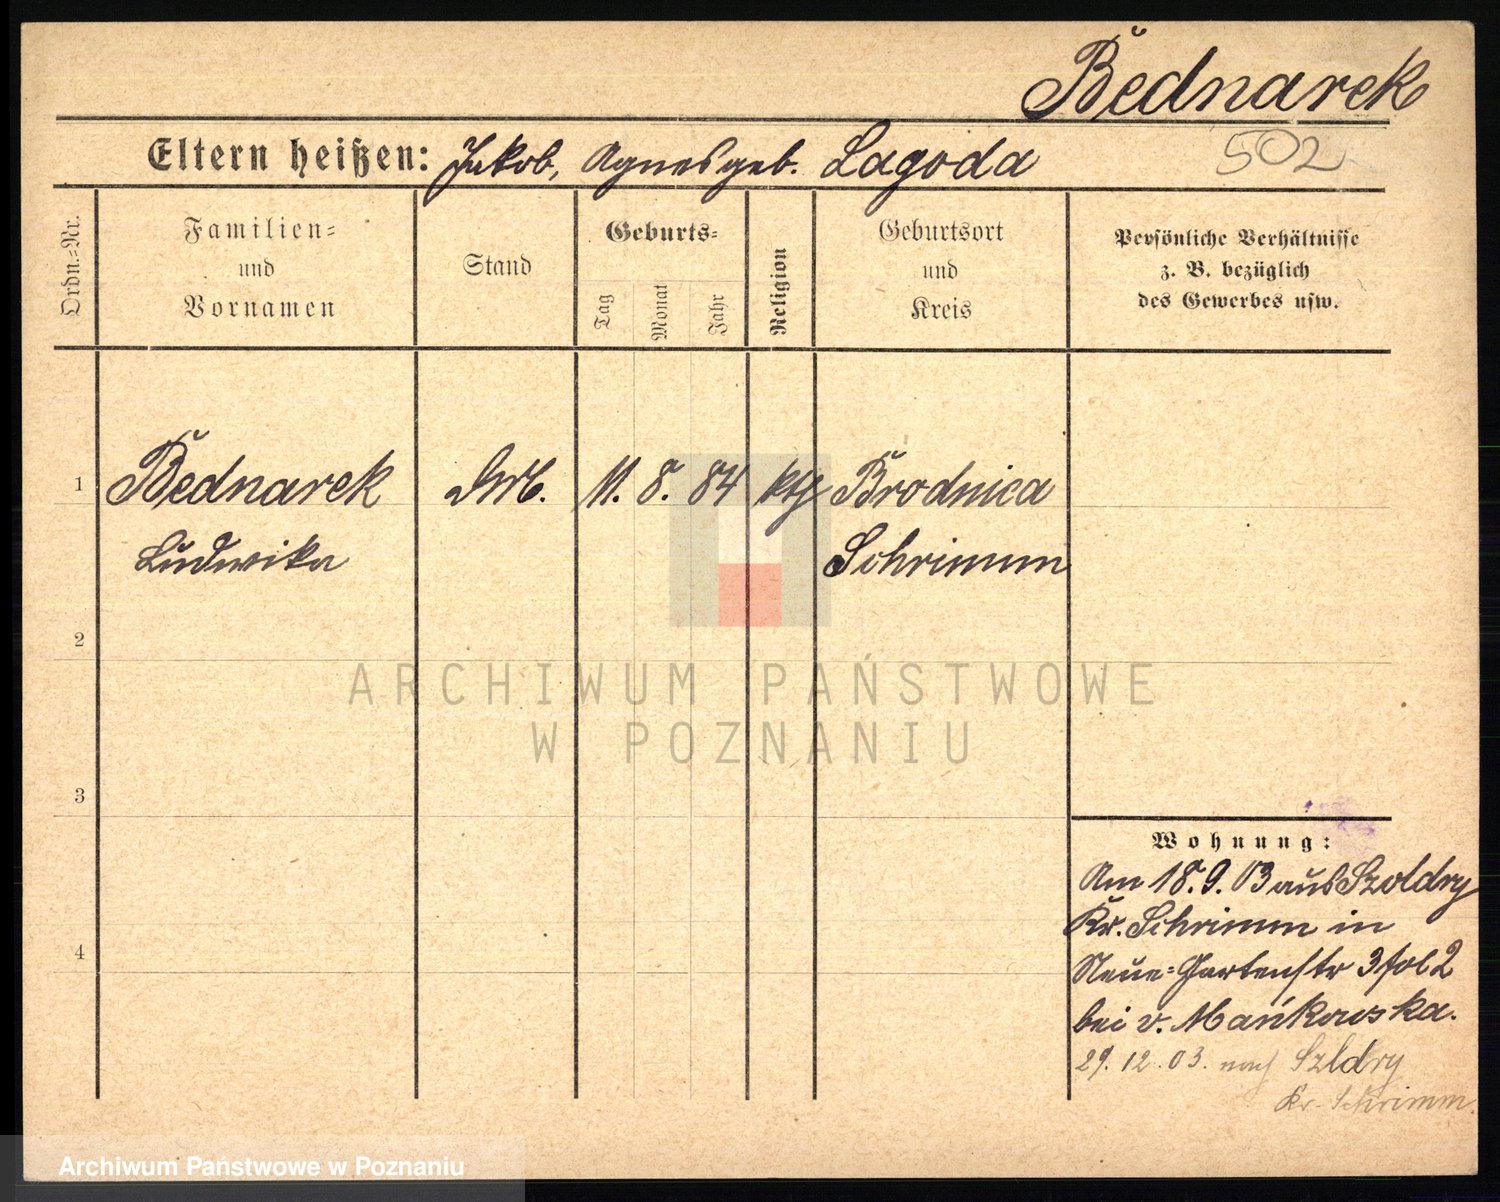 Bednarek
502
Eltern heißen: Jakob, Agnes geb. Lagoda
Ordn.-Nr.
Familien-
und
Vornamen
Stand
Geburts-
Tag
Monat
Jahr
Religion
Geburtsort
und
Kreis
Persönliche Verhältnisse
z. B. bezüglich
des Gewerbes usw.
1 Bednarek 11. 8. 84 kth Brodnica
Ludwika Schrimm
2
3
4
Wohnung:
Am 18.9.03 aus Szoldry
Kr. Schrimm in
Neue-Gartenstr 3 fol 2
bei v. Mańkowska.
29.12.03. nach Szldry
Kr. Schrimm.
ARCHIWUM PAŃSTWOWE
W POZNANIU
Archiwum Państwowe w Poznaniu